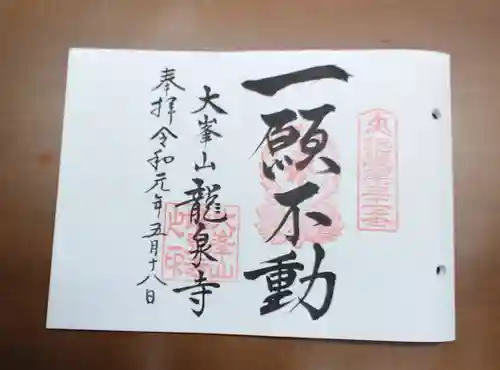 一願不動
大峯山龍泉寺
奉拝令和元年五月十八日
大峯山